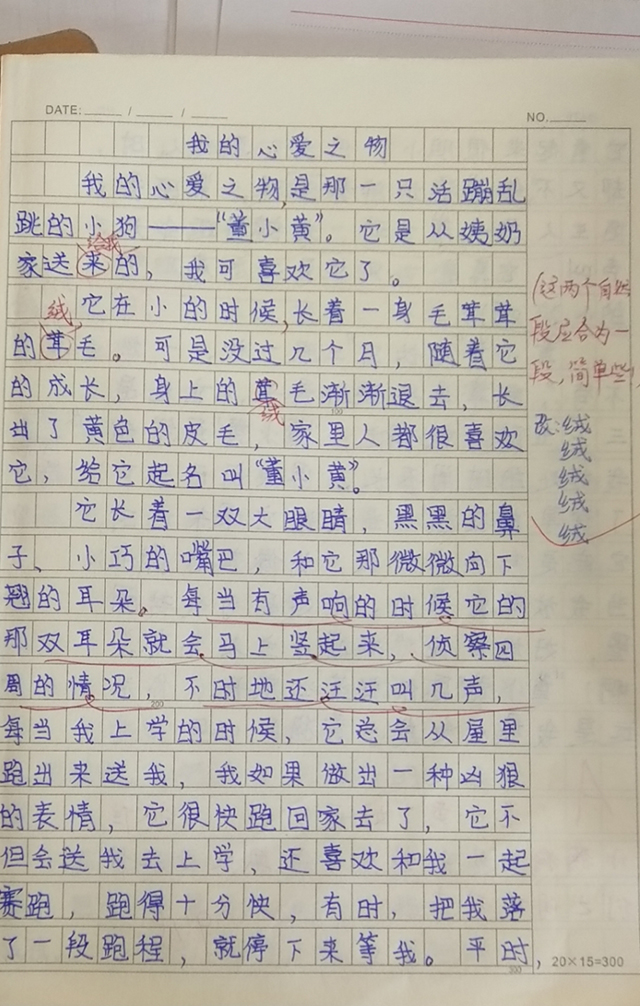 DATE: / /
NO.
我的心爱之物
我的心爱之物,是那一只活蹦乱
跳的小狗——“董小黄”。它是从姨奶
给我
家送来的，我可喜欢它了。
绒
它在小的时候,长着一身毛茸茸
的茸毛。可是没过几个月，随着它
的成长，身上的茸毛渐渐退去，长
绒
100
出了黄色的皮毛，家里人都很喜欢
它，给它起名叫“董小黄”。
它长着一双大眼睛，黑黑的鼻
子、小巧的嘴巴，和它那微微向下
翘的耳朵。每当有声响的时候它的
那双耳朵就会马上竖起来，侦察四
周的情况，不时地还汪汪叫几声，
200
每当我上学的时候，它总会从屋里
跑出来送我，我如果做出一种凶狠
的表情，它很快跑回家去了，它不
但会送我去上学，还喜欢和我一起
赛跑，跑得十分快，有时，把我落
了一段跑程，就停下来等我。平时，
300
20×15=300
(这两个自然
段应合为一
段，简单些)
改:绒
绒
绒
绒
绒